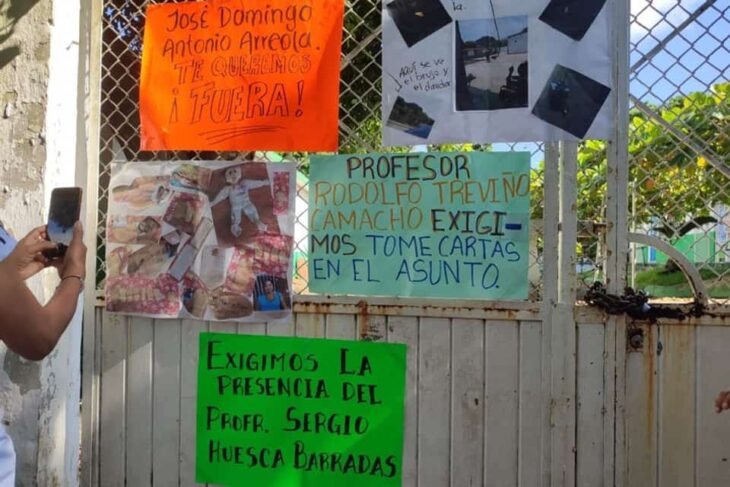 José Domingo
Antonio Arreola.
TE QUEREMOS
¡FUERA!
la.
AQUÍ se ve
el brujo y
el director
PROFESOR
RODOLFO TREVIÑO
CAMACHO EXIGI-
MOS TOME CARTAS
EN EL ASUNTO.
EXIGIMOS LA
PRESENCIA DEL
PROFR. SERGIO
HUESCA BARRADAS